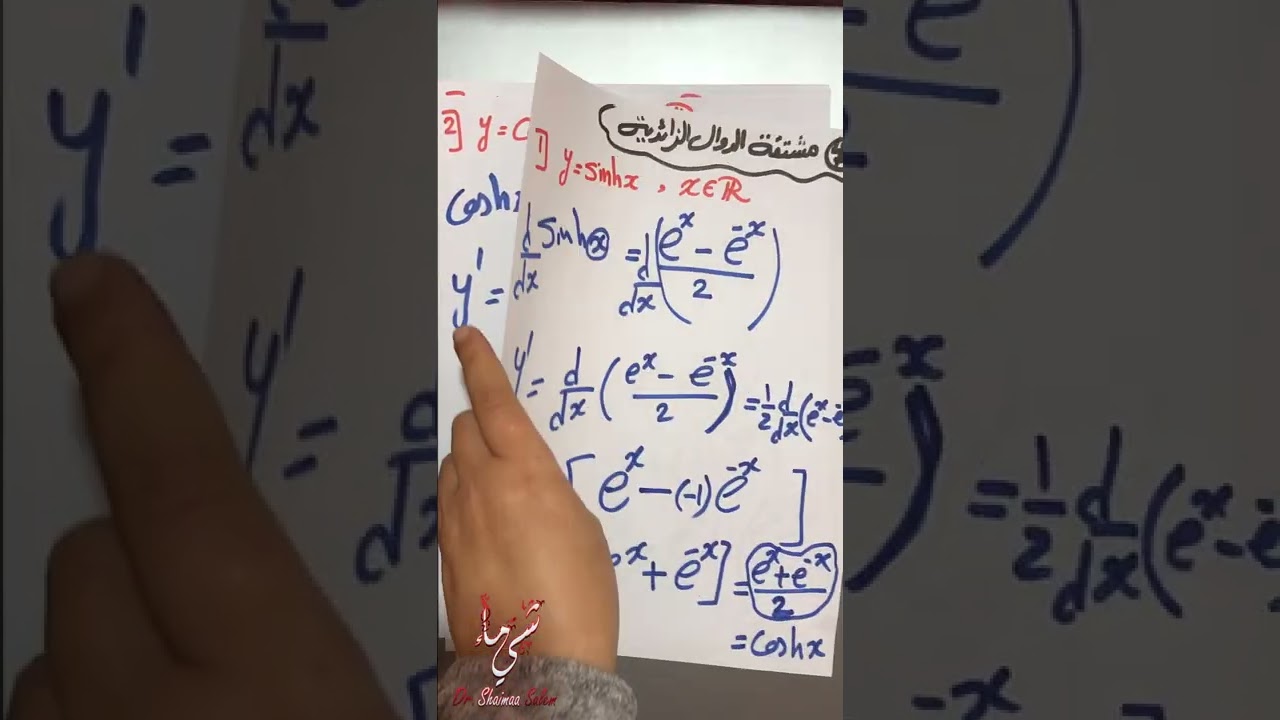 مشتقة الدوال الزائدية
1] y=sinhx , x∈ℝ
d/dx sinh x = d/dx ((e^x - e^-x)/2)
y' = d/dx ((e^x - e^-x)/2) = 1/2 d/dx (e^x - e
[e^x - (-1) e^-x]
e^x + e^-x] = (e^x + e^-x)/2
= coshx
2] y = C
cosh
y' =
شيماء
Dr. Shaimaa Salem